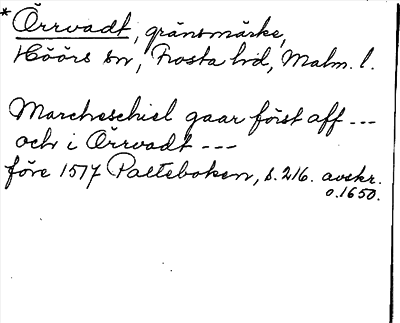 * Örrvadt, gränsmärke,
Höörs sn, Frosta hd, Malm. l.
Marcheschiel gaar först aff ---
och i Örrvadt ---
före 1517 Palteboken, s. 216. avskr.
o. 1650.